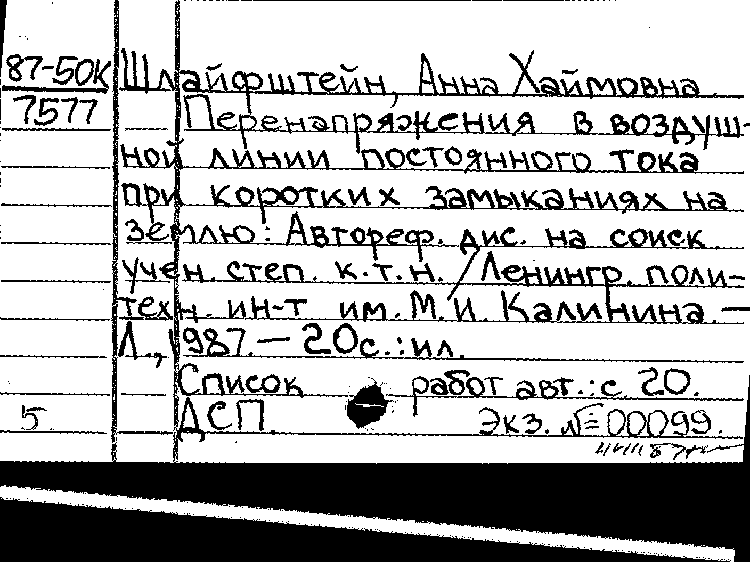 87-50К Шлайфштейн, Анна Хаймовна
7577 Перенапряжения в воздуш-
ной линии постоянного тока
при коротких замыканиях на
землю: Автореф. дис. на соиск.
учен. степ. к.т.н. / Ленингр. поли-
техн. ин-т им. М.И. Калинина. —
Л., 1987. — 20с.: ил.
Список работ авт.: с 20.
5 ДСП. Экз. №00099.